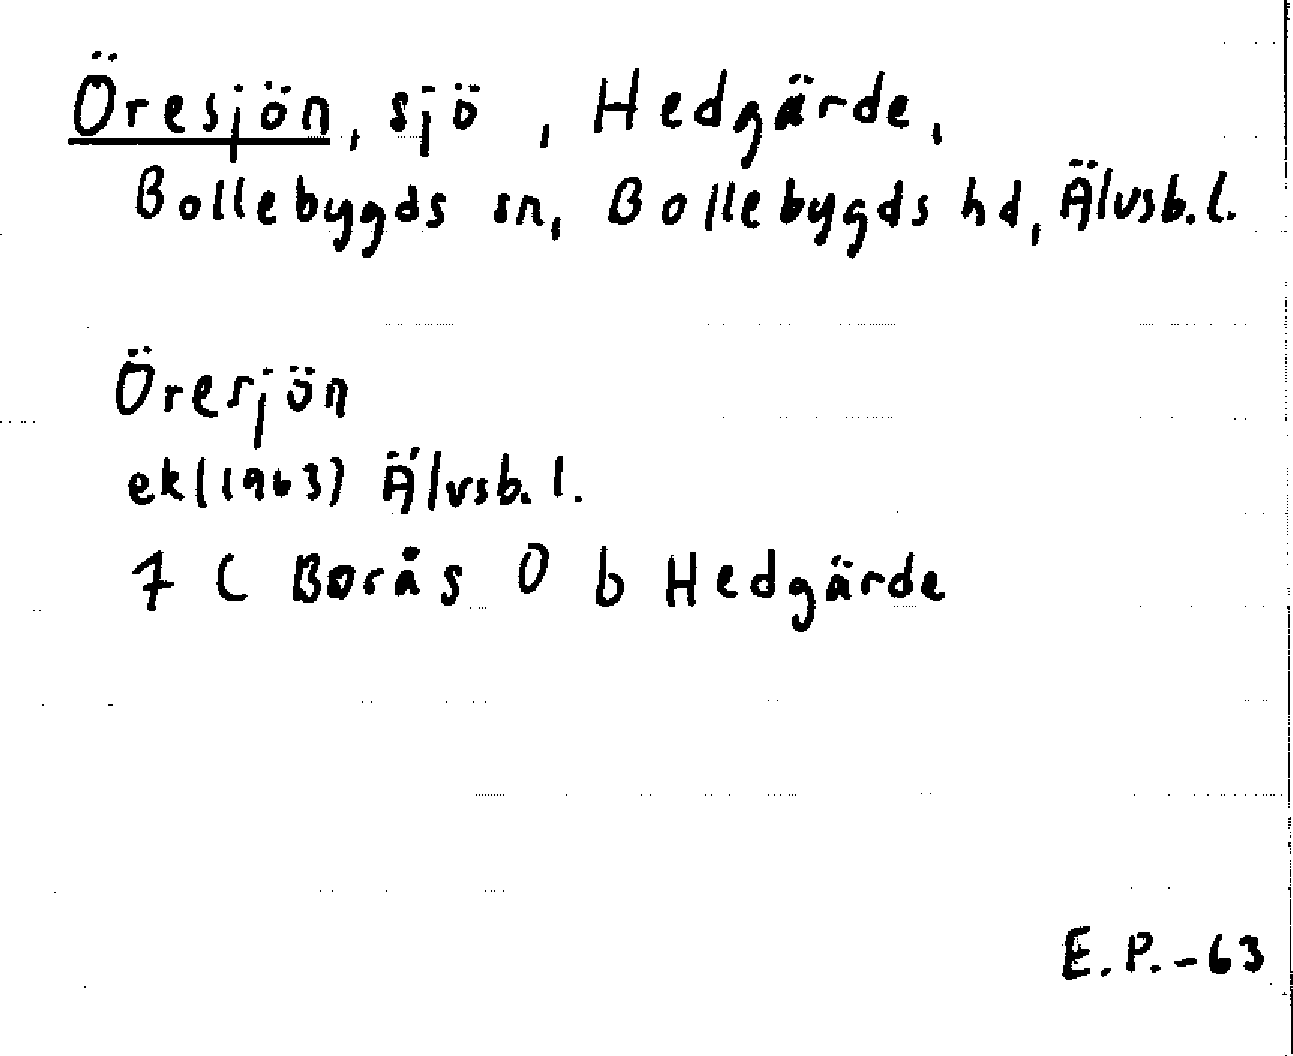 Öresjön, sjö, Hedgärde,
Bollebygds sn, Bollebygds hd, Älvsb.l.
Öresjön
ek(1963) Älvsb. l.
7 C Borås O b Hedgärde
E.P.-63